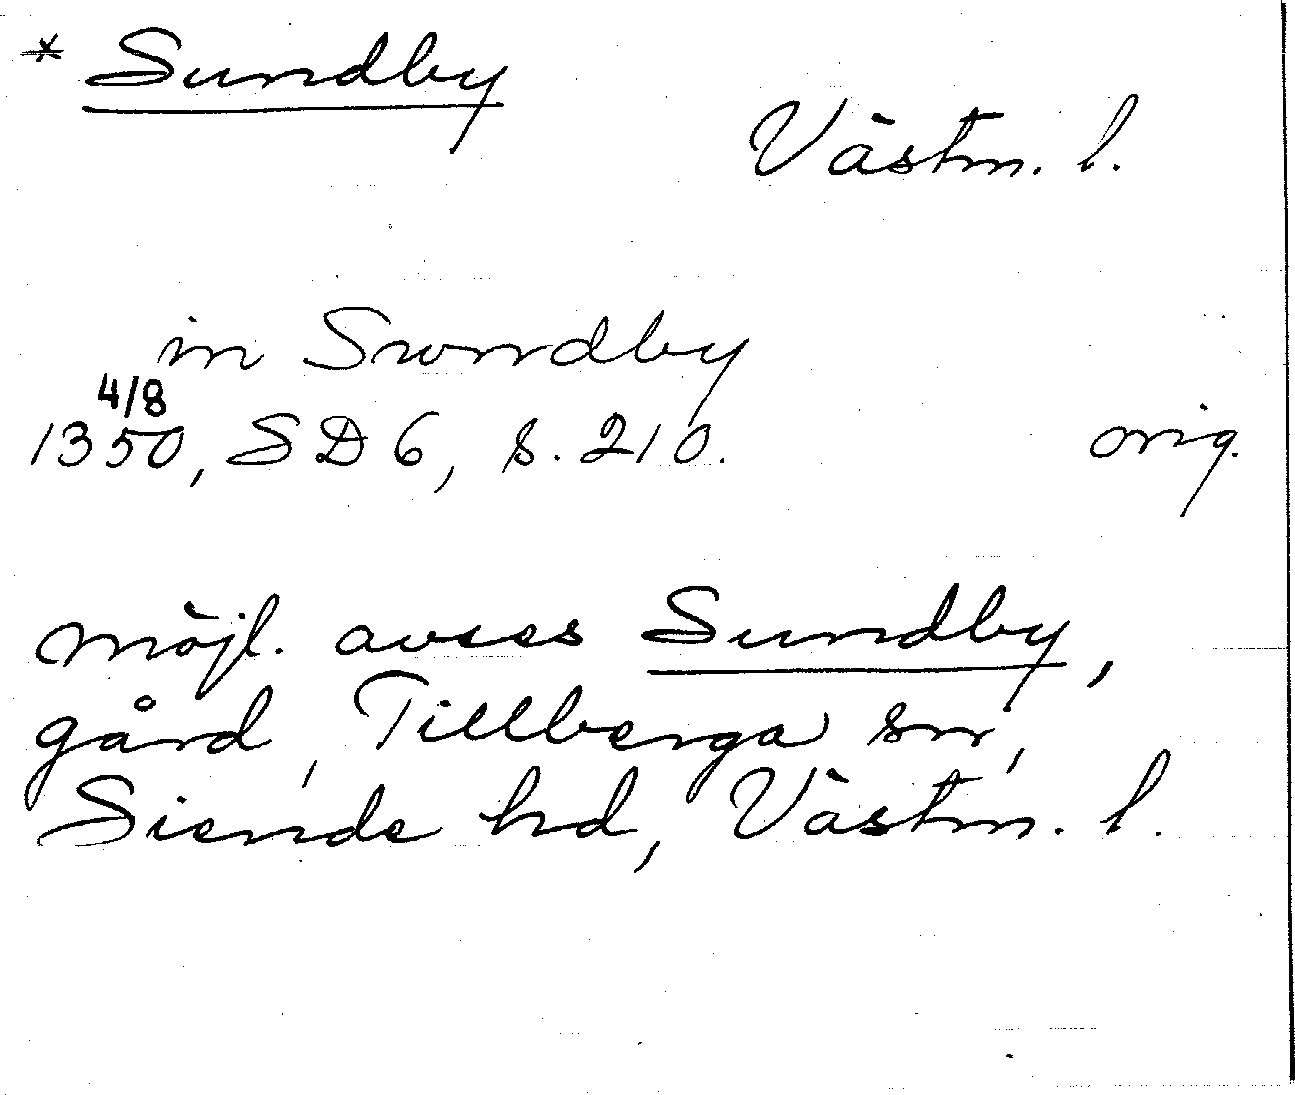 * Sundby
Västm. l.
in Swndby
4/8
1350, SD 6, s. 210. orig.
möjl. avses Sundby,
gård, Tillberga sn,
Siende hd, Västm. l.